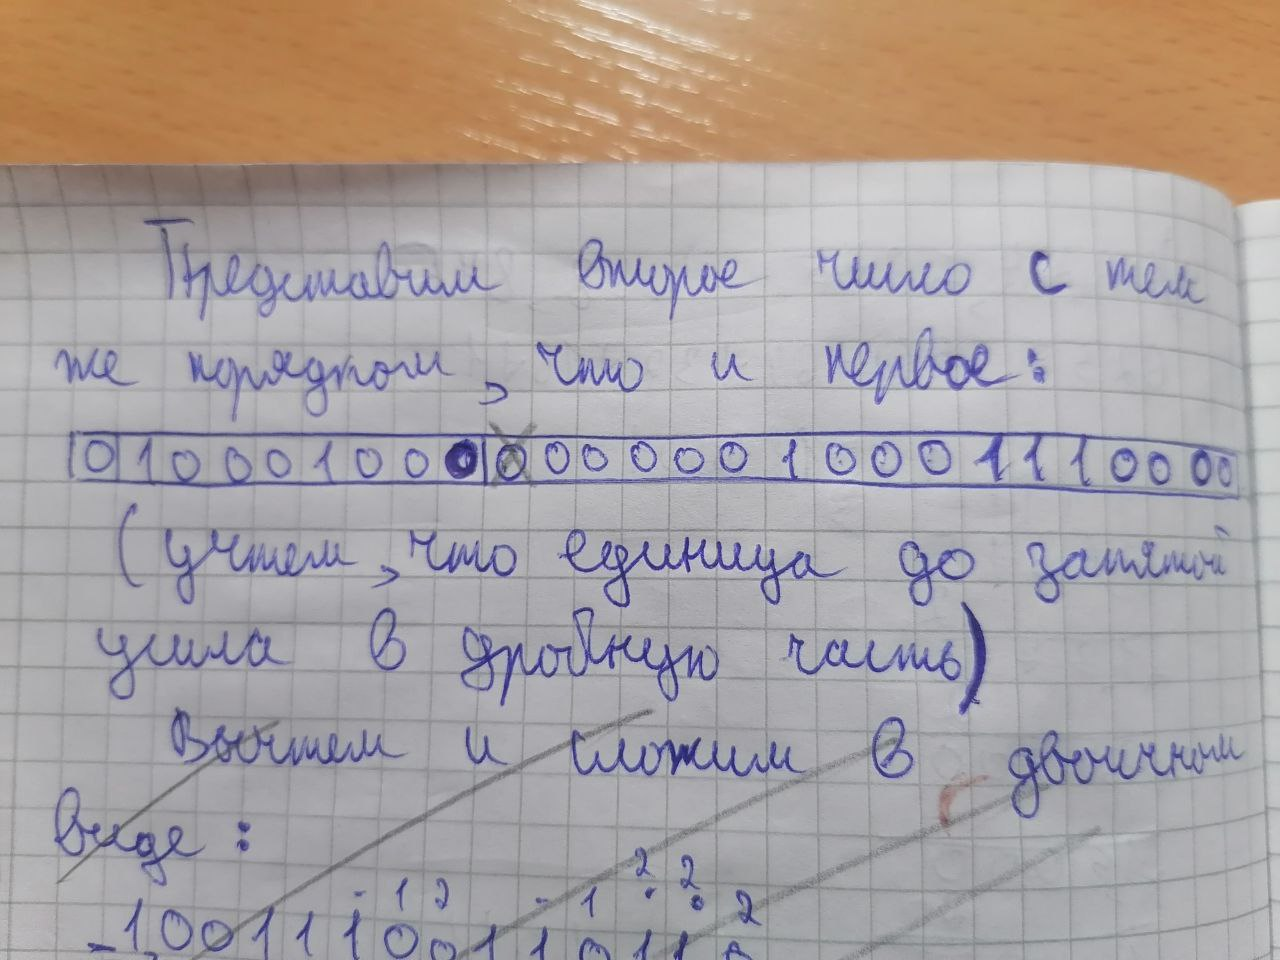 Представим второе число с тем
же порядком, что и первое:
0 1 0 0 0 1 0 0 0 0 0 0 0 0 0 1 0 0 0 1 1 1 0 0 0 0
(учтем, что единица до запятой
ушла в дробную часть)
Вычтем и сложим в двоичном
виде: